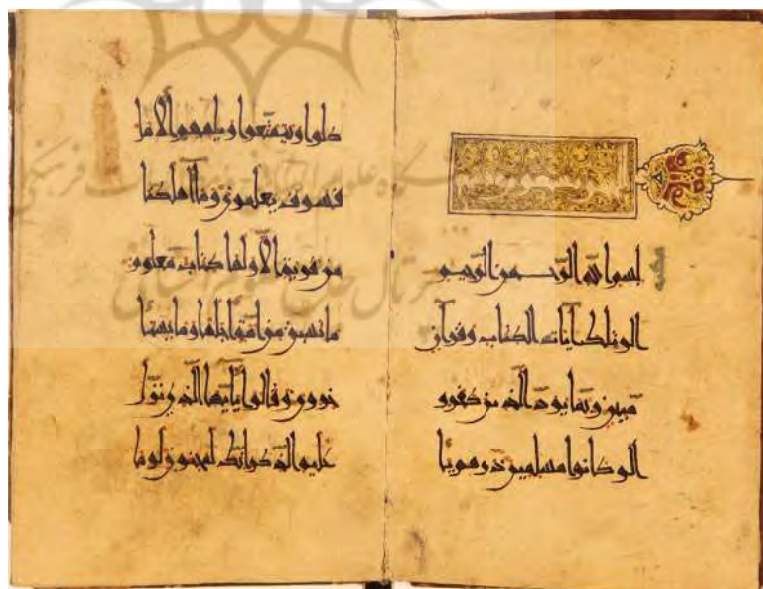 بسم الله الرحمن الرحيم
الر تلك آيات الكتاب وقرآن
مبين ربما يود الذين كفرو
ا لو كانوا مسلمين ذرهم يأ
كلوا ويتمتعوا ويلههم الأمل
فسوف يعلمون وما أهلكنا
من قرية إلا ولها كتاب معلوم
ما تسبق من أمة أجلها وما يستأ
خرون وقالوا يا أيها الذي نزل
عليه الذكر إنك لمجنون لو ما
پرتال جامع علوم انسانی